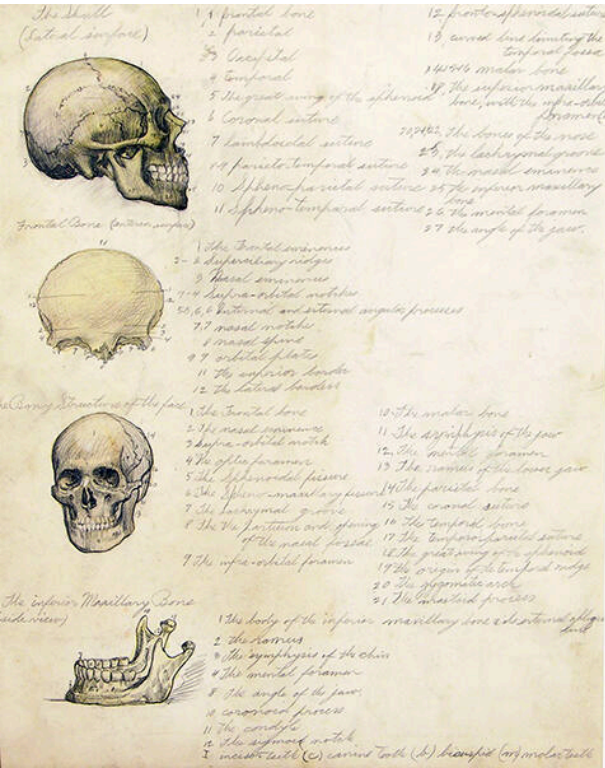 The Skull
(Lateral surface)
1 frontal bone
2 parietal
3 Occipital
4 temporal
5 The great wing of the sphenoid
6 Coronal suture
7 Lambdoidal suture
8-9 parieto-temporal suture
10 Spheno-parietal suture
11 Spheno-temporal suture
12. fronto-sphenoidal suture
13, curved line limiting the
temporal fossa
malar bone
the superior maxillary
bone, with the infra-orbital
foramen
The bones of the nose
23, the lachrymal groove
24. the nasal eminence
25 the inferior maxillary
bone
26 the mental foramen
27 the angle of the jaw.
Frontal Bone (anterior surface)
1 The frontal eminences
2-2 Superciliary ridges
3 Nasal eminences
4-4 Supra-orbital notches
5,5,6,6 Internal and external angular processes
7,7 nasal notches
8 nasal spine
9 9 orbital plates
11 the inferior border
12 the lateral borders
The Bony Structure of the face
1 The Frontal bone
2 The nasal eminence
3 Supra-orbital notch
4 The optic foramen
5 The Sphenoidal fissure
6 The Spheno-maxillary fissure
7 The lachrymal groove
8 The partition and opening
of the nasal fossae
9 The infra-orbital foramen
10. The malar bone
11 The symphysis of the jaw
12. The mental foramen
13 The ramus of the lower jaw
14 The parietal bone
15 The coronal suture
16 The temporal bone
17 The temporo-parietal suture
18 The great wing of the sphenoid
19 The origin of the temporal ridge
20 the zygomatic arch
21 The mastoid process
The inferior Maxillary Bone
(side view)
1 The body of the inferior maxillary bone & the external oblique
line
2 the ramus
3 The symphysis of the chin
4 The mental foramen
8 The angle of the jaw.
10 coronoid process
11 the condyle
12 The sigmoid notch
I incisor teeth (c) canine tooth (b) bicuspid (m) molar teeth